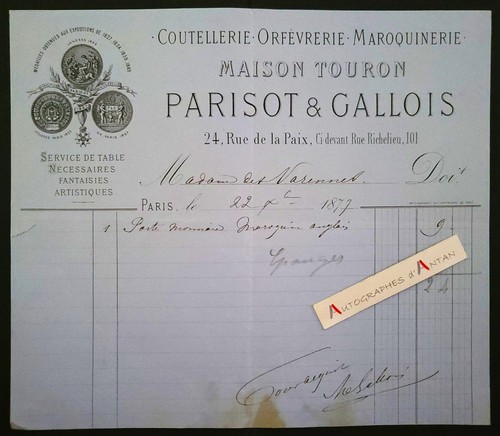 COUTELLERIE · ORFÈVRERIE · MAROQUINERIE
MAISON TOURON
PARISOT & GALLOIS
24, Rue de la Paix, Ci devant Rue Richelieu, 101
MÉDAILLES OBTENUES AUX EXPOSITIONS DE 1827, 1834, 1839, 1849
SERVICE DE TABLE
NÉCESSAIRES
FANTAISIES
ARTISTIQUES
Madame des Varennes. Doit
PARIS, le 22 Xbre 1877
1 Porte monnaie maroquin anglais 9
AUTOGRAPHES d'ANTAN
24
Pour acquit